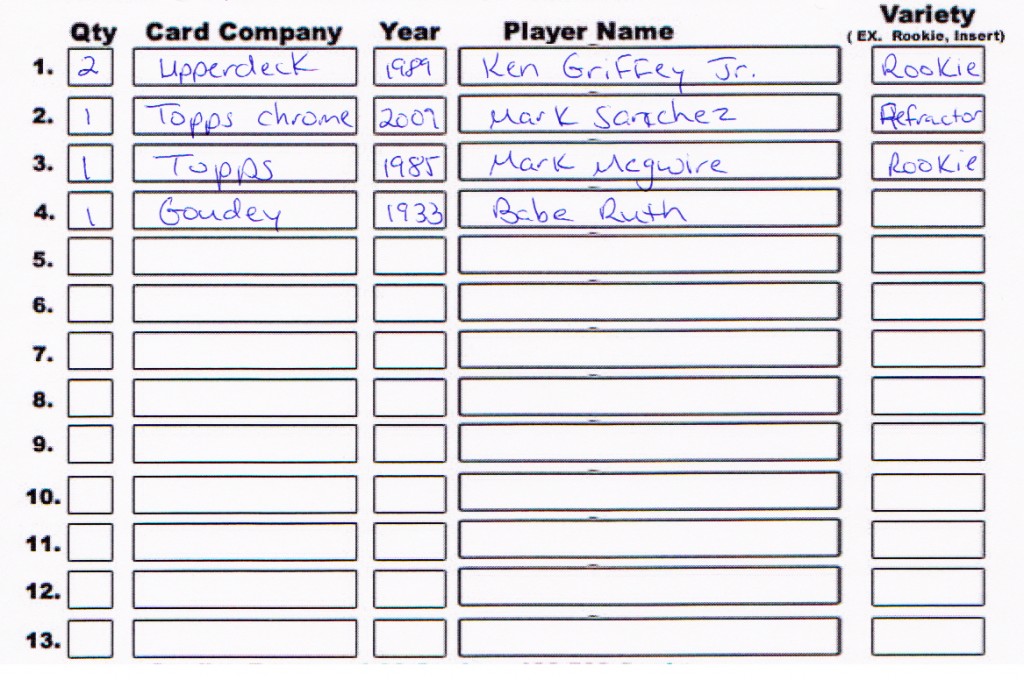 Qty Card Company Year Player Name Variety
( EX. Rookie, Insert)
1. 2 Upperdeck 1989 Ken Griffey Jr. Rookie
2. 1 Topps chrome 2009 Mark Sanchez Refractor
3. 1 Topps 1985 Mark Mcgwire Rookie
4. 1 Goudey 1933 Babe Ruth
5.
6.
7.
8.
9.
10.
11.
12.
13.